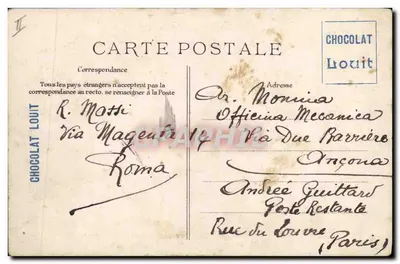 II
CHOCOLAT
Louit
CARTE POSTALE
Correspondance
Tous les pays étrangers n'acceptent pas la
correspondance au recto, se renseigner à la Poste
R. Massi
Via Magenta 14
Roma
CHOCOLAT LOUIT
Adresse
Ar. Monina
Officina Mecanica
Via Due Barriere
Ancona
Andrée Guittard
Poste Restante
Rue du Louvre
(Paris)